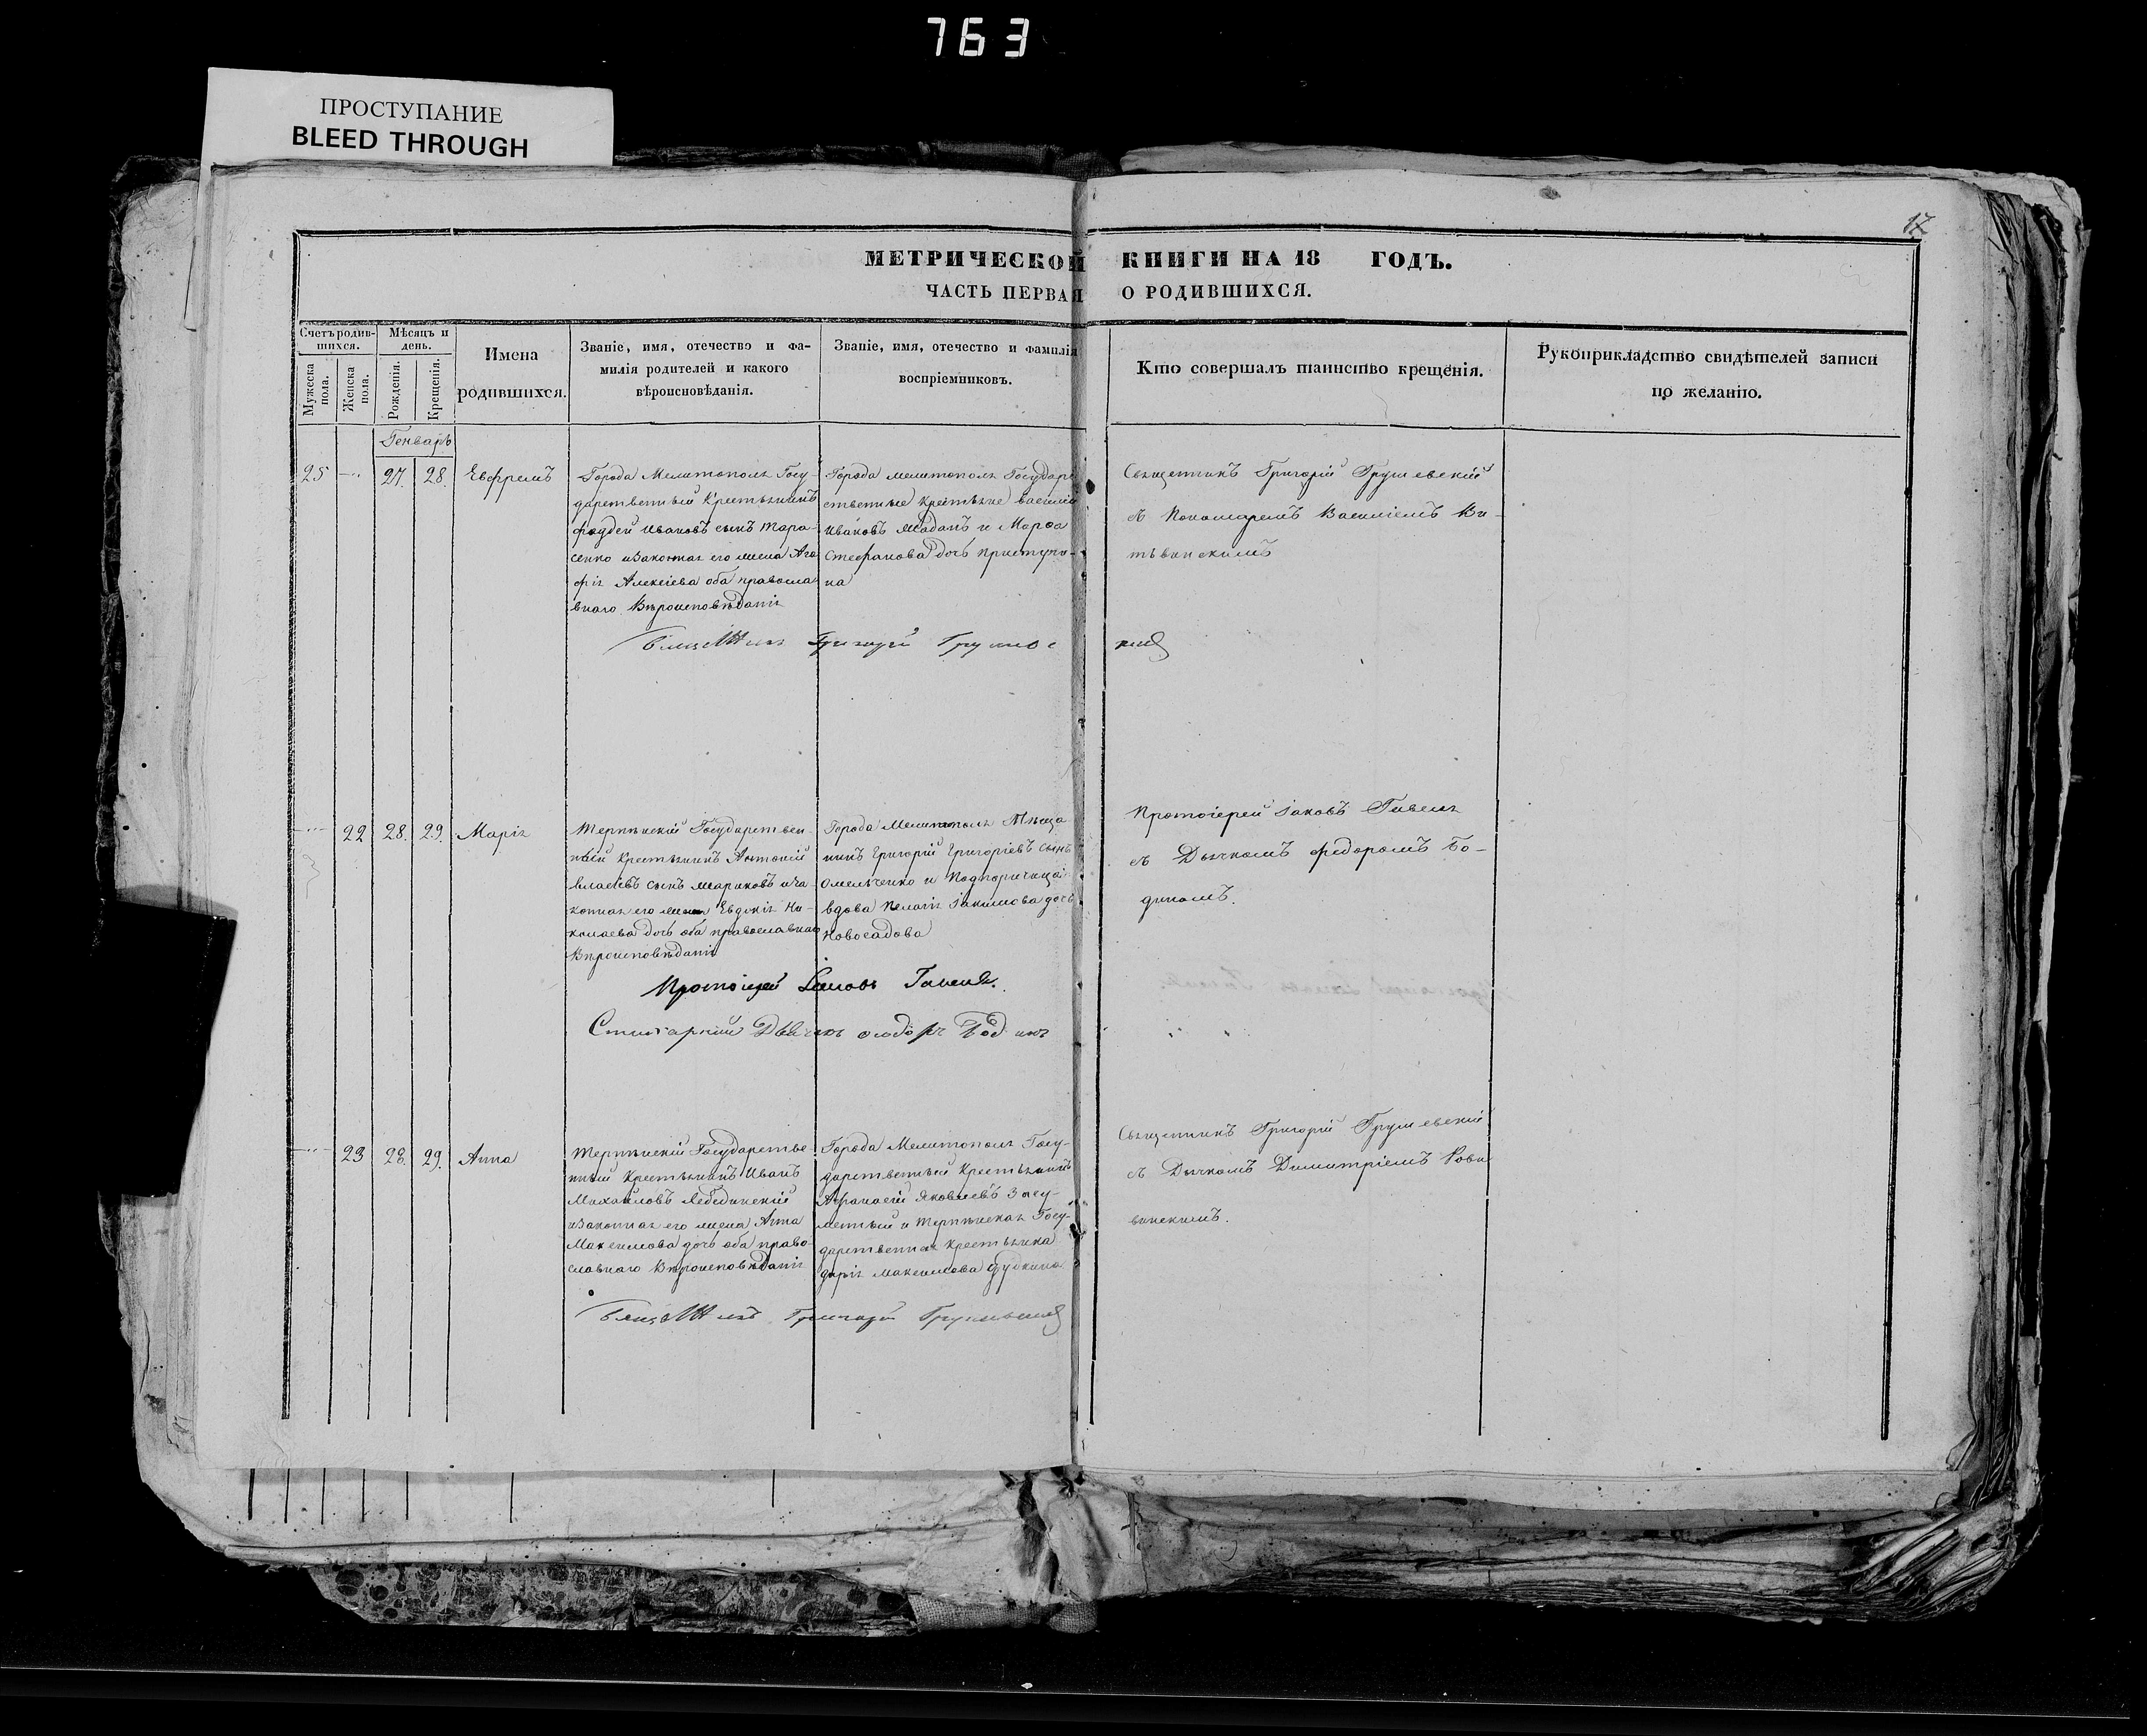 763
ПРОСТУПАНИЕ
BLEED THROUGH
17
МЕТРИЧЕСКОЙ КНИГИ НА 18 ГОДЪ.
ЧАСТЬ ПЕРВАЯ О РОДИВШИХСЯ.
Счетъ родив-
шихся.
Мужеска пола.
Женска пола.
Мѣсяцъ и
день.
Рожденія.
Крещенія.
Имена
родившихся.
Званіе, имя, отечество и фа-
милія родителей и какого
вѣроисповѣданія.
Званіе, имя, отечество и фамилія
воспріемниковъ.
Кто совершалъ таинство крещенія.
Рукоприкладство свидѣтелей записи
по желанію.
Генварь
25 27. 28. Евфремъ
Города Мелитополя Госу-
дарственный Крестьянинъ
Фаддей Ивановъ сынъ Тара-
сенко и законная его жена Ага
фія Алексіева оба правосла
внаго Вѣроисповѣданія
Города Мелитополя Государ
ственные Крестьяне Василій
Ивановъ и Марфа
Стефанова дочь
на
Священникъ Григорій Грушевскій
съ Пономаремъ Василіемъ Ви-
Священникъ Григорій Грушевскій
22 28. 29. Марія
Терпѣнскій Государствен-
ный Крестьянинъ Антоній
Власіевъ сынъ Шариковъ и за
конная его жена Евдокія Ни-
колаева дочь оба православнаго
Вѣроисповѣданія
Города Мелитополя Мѣща
нинъ Григорій Григоріевъ сынъ
Омельченко и Подпоручица
вдова Пелагія Іакимова дочь
Новосадова
Протоіерей Іаковъ Гавель
съ Дьячкомъ Федоромъ Бо-
диномъ.
Протоіерей Іаковъ
Стихарный Дьячокъ Бодинъ
23 28. 29. Анна
Терпѣнскій Государстве
нный Крестьянинъ Иванъ
Михайловъ Лебединскій
и законная его жена Анна
Максимова дочь оба право-
славнаго Вѣроисповѣданія
Города Мелитополя Госу-
дарственный Крестьянинъ
Афанасій Яковлевъ
и Терпѣнская Госу-
дарственная Крестьянка
Дарія Максимова
Священникъ Григорій Грушевскій
съ Дьячкомъ Димитріемъ
Священникъ Григорій Грушевскій